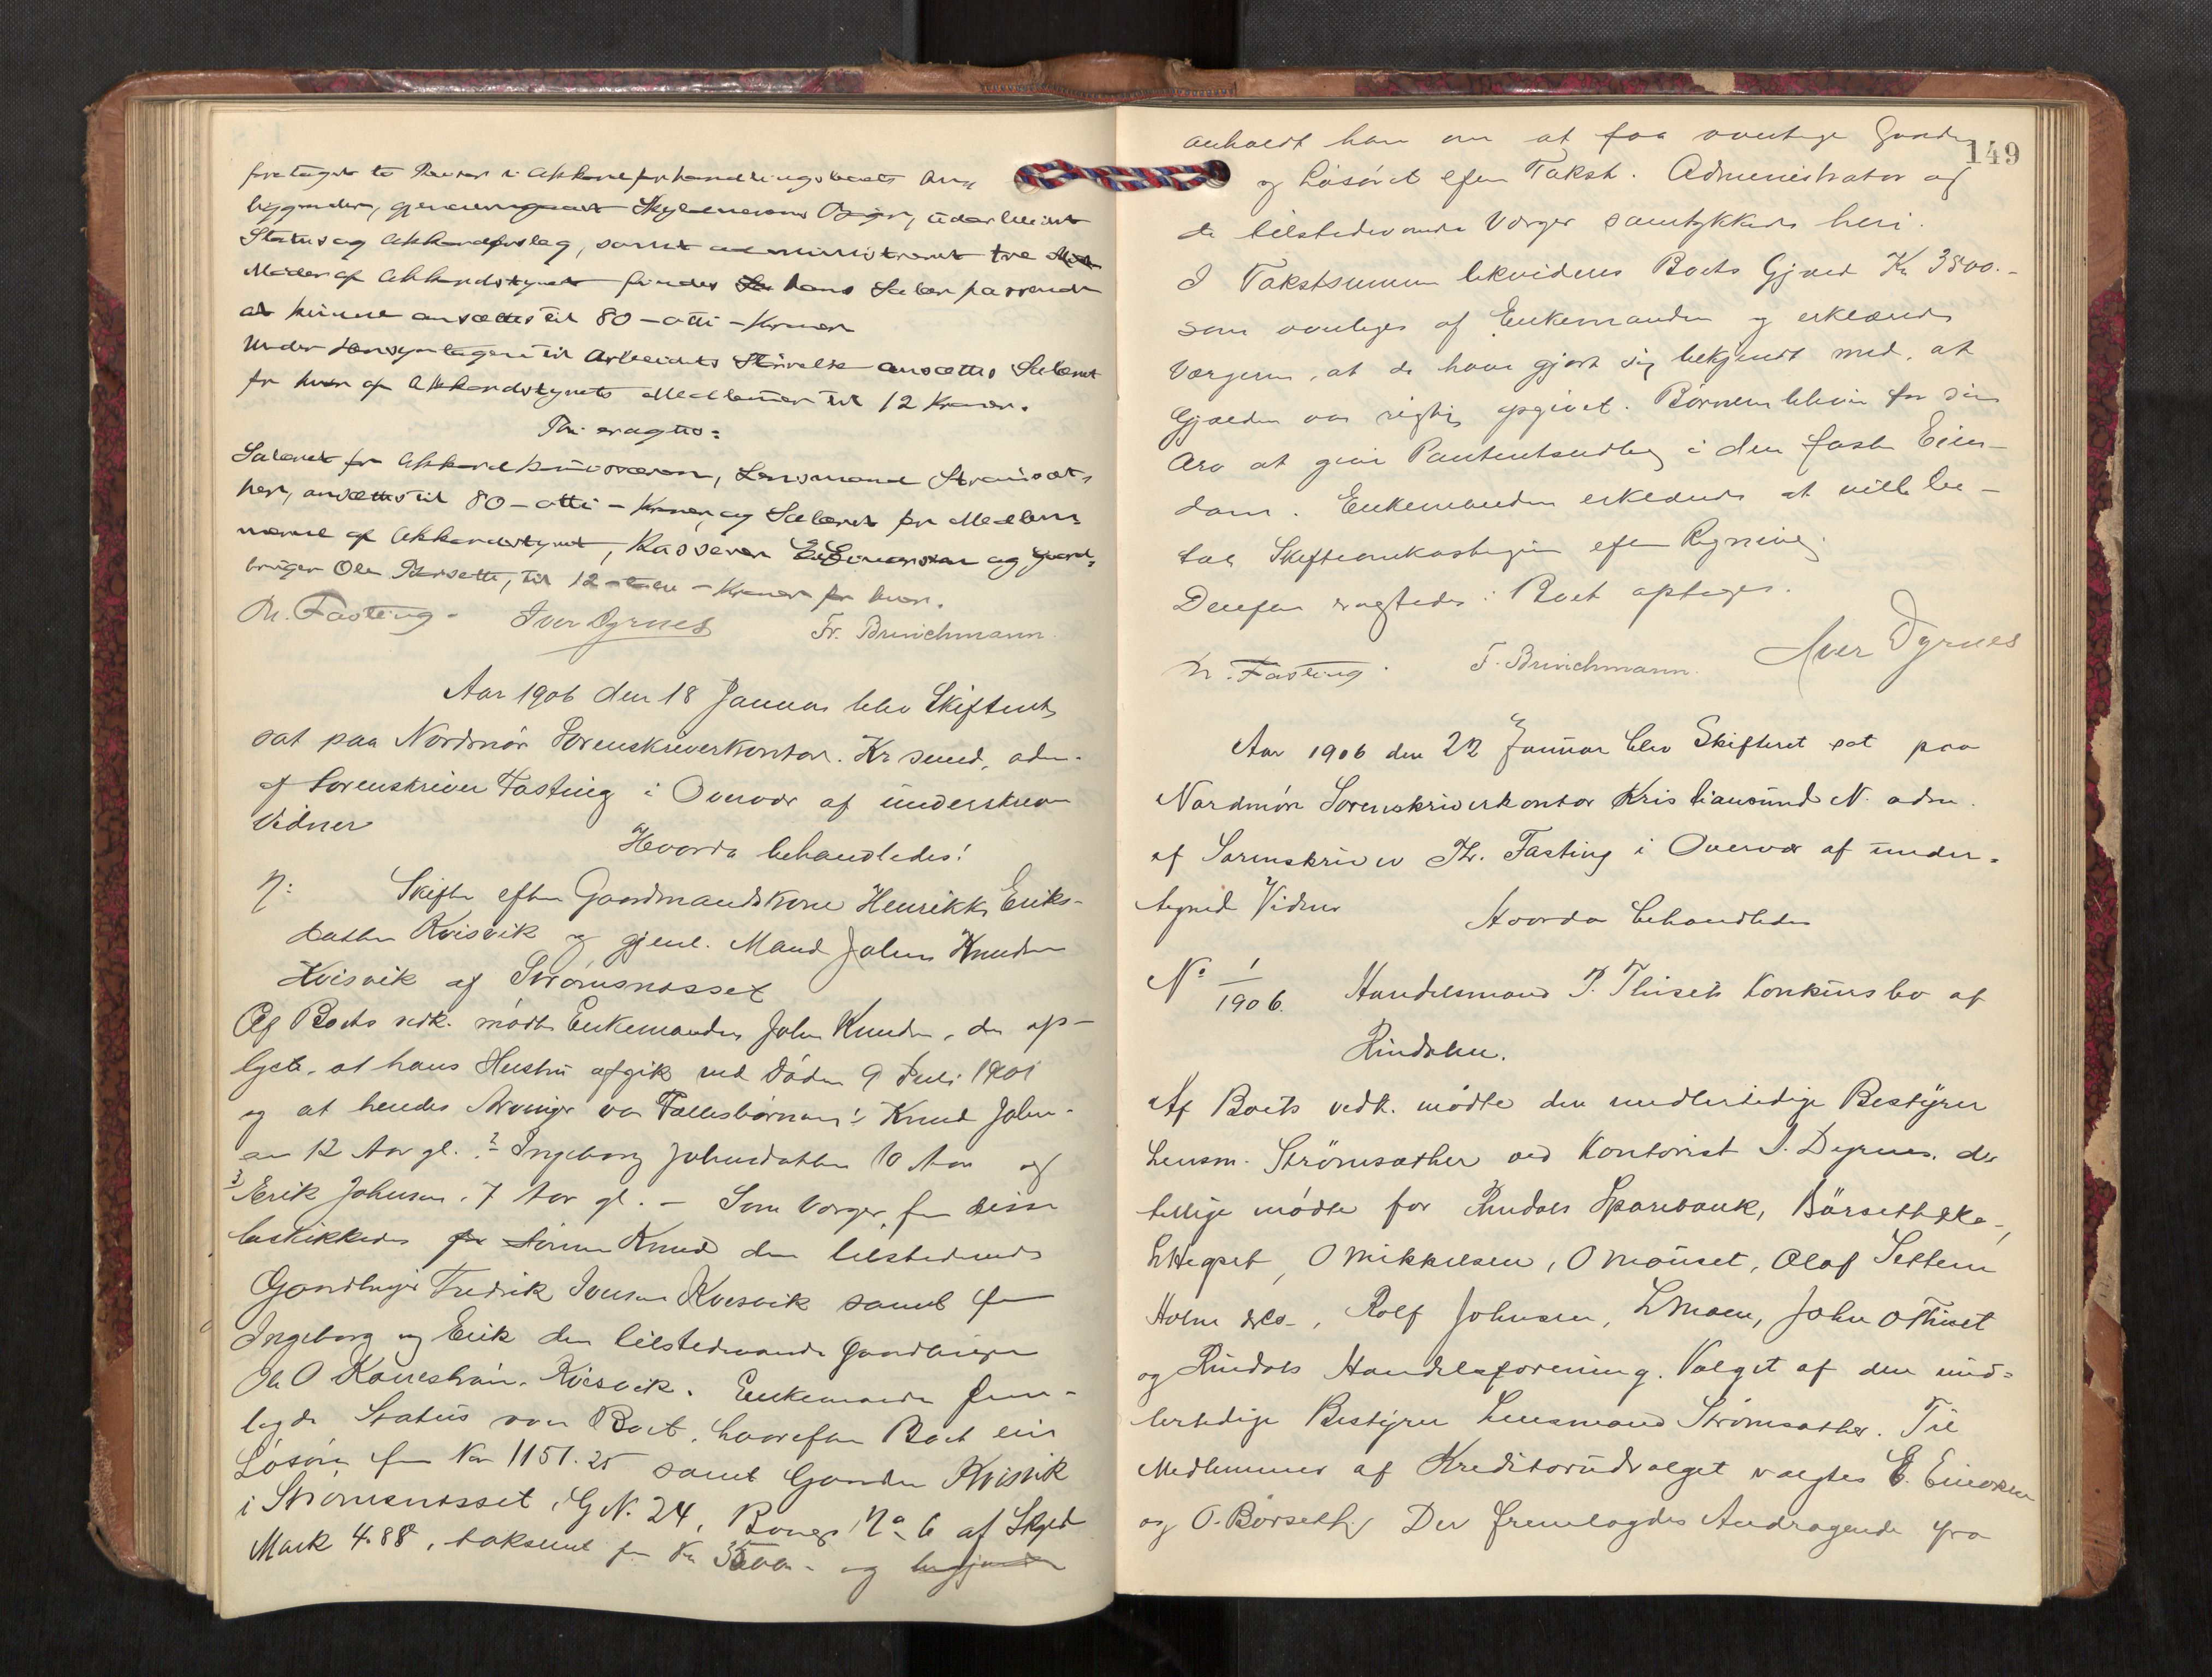 foretaget to Reiser i Akkordforhandlingsboets An-
liggender, gjennemgaaet Skyldnerens Bøger, udarbeidet
Status og Akkordforslag, samt administreret tre
Møder af Akkordstyret findes hans Salær passende
at kunne ansættes til 80 – otti – Kroner
Under Hensyntagen til Arbeidets Størrelse ansættes Salæret
for hver af Akkordstyrets Medlemmer til 12 Kroner.
Thi eragtes:
Salæret for Akkordkommissæren, Lensmand Strømsæt-
her, ansættes til 80 – otti – Kroner, og Salæret for Medlem-
merne af Akkordstyret, Kasserer E. Einersen og Gaard-
bruger Ole Børseth, til 12 – – Kroner for hver.
Th. Fasting. Iver Dyrnes Fr. Brinchmann.
Aar 1906 den 18 Januar blev Skifteret
sat paa Nordmør Sorenskriverkontor. Kr.sund, adm.
af Sorenskriver Fasting i Overvær af underskrevne
Vidner
Hvorda behandledes!
Skifte efter Gaardmandskone Henrikke Eriks-
datter Kvisvik og gjenl. Mand John Knudsen
Kvisvik af Strømsnæsset
Af Boets vedk. mødte Enkemanden John Knudsen, der op-
lyste, at hans Hustru afgik ved Døden 9 Juli 1901
og at hendes Arvinger var Fællesbørnene: Knud John-
sen 12 Aar gl. 2 Ingeborg Johnsdatter 10 Aar og
3 Erik Johnsen, 7 Aar gl. – Som Værger for disse
beskikkedes for Knud den tilstedeværende
Gaardbruger Fredrik Iversen Kvisvik samt for
Ingeborg og Erik den tilstedeværende Gaardbruger
O Kvisvik. Enkemanden frem-
lagde Status over Boet, hvorefter Boet eier
Løsøre for Kr 1151.25 samt Gaarden Kvisvik
i Strømsnæsset, G N. 24, Brugs No 6 af Skyld
Mark 4.88, taksert for Kr 3500.- og
149
anholdt han om at faa ovennævnte Gaard
og Løsøret efter Takst. Administrator og
de tilstedeværende Værger samtykkede heri.
I Takstsummen likvideres Boets Gjæld Kr 3500.-
som overtages af Enkemanden og erklærede
Værgerne, at de have gjort sig bekjendt med, at
Gjælden var rigtig opgivet. Børnene bliver for sin
Arv at give Panteudlæg i den faste Eien-
dom. Enkemanden erklærede at ville be-
tale Skifteomkostningerne efter Regning.
Derefter eragtedes: Boet optages.
Th. Fasting. F. Brinchmann. Iver Dyrnes
Aar 1906 den 22 Januar blev Skifteret sat paa
Nordmøre Sorenskriverkontor Kristiansund N. adm.
af Sorenskriver Th. Fasting i Overvær af under-
tegned Vidner Hvorda behandledes
No 1/1906. Handelsmand I. Thisets Konkursbo af
Rindalen.
Af Boets vedk. mødte den midlertidige Bestyrer
Lensm. Strømsæther ved Kontorist I. Dyrnes, der
tillige mødte for Rindals Sparebank, Børseth & Co,
Hegset, O Mikkelsen, O Mauset, Olaf Settem
Holm & Co, Rolf Johnsen, L Moen, John O Thiset
og Rindals Handelsforening. Valget af den mid-
lertidige Bestyrer Lensmand Strømsæther. Til
Medlemmer af Kreditorudvalget valgtes E. Einersen
og O. Børseth. Der fremlagdes Andragende fra